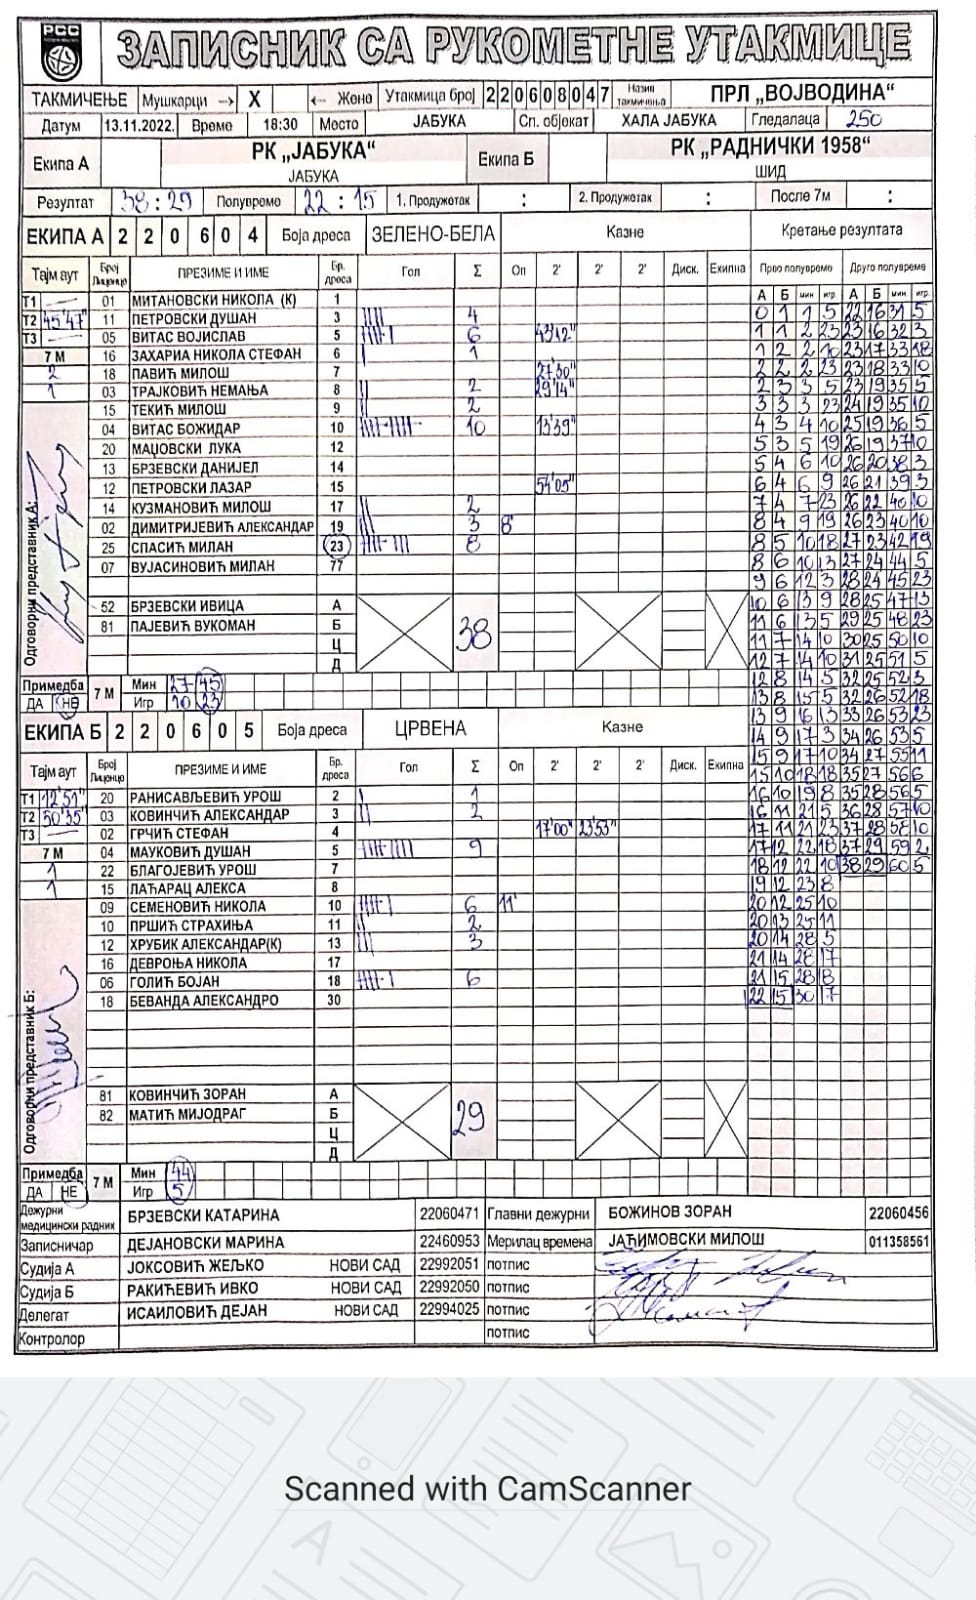 РСС
ЗАПИСНИК СА РУКОМЕТНЕ УТАКМИЦЕ
ТАКМИЧЕЊЕ Мушкарци → X ← Жене Утакмица број 220608047 Назив такмичења ПРЛ „ВОЈВОДИНА“
Датум 13.11.2022. Време 18:30 Место ЈАБУКА Сп. објекат ХАЛА ЈАБУКА Гледалаца 250
Екипа А РК „ЈАБУКА“ ЈАБУКА Екипа Б РК „РАДНИЧКИ 1958“ ШИД
Резултат 38:29 Полувреме 22:15 1. Продужетак : 2. Продужетак : После 7м :
ЕКИПА А 2 2 0 6 0 4 Боја дреса ЗЕЛЕНО-БЕЛА Казне Кретање резултата
Тајм аут Број Лиценце ПРЕЗИМЕ И ИМЕ Бр. дреса Гол Σ Оп 2' 2' 2' Диск. Екипна Прво полувреме Друго полувреме
А Б мин игр А Б мин игр
Т1 — 01 МИТАНОВСКИ НИКОЛА (К) 1 0 1 1 5 22 16 31 5
Т2 45'47" 11 ПЕТРОВСКИ ДУШАН 3 4 1 1 2 23 23 16 32 3
Т3 — 05 ВИТАС ВОЈИСЛАВ 5 6 43'42" 1 2 2 10 23 17 33 18
7 М 16 ЗАХАРИА НИКОЛА СТЕФАН 6 1 2 2 2 23 23 18 33 10
2 18 ПАВИЋ МИЛОШ 7 27'30" 2 3 3 5 23 19 35 5
1 03 ТРАЈКОВИЋ НЕМАЊА 8 2 29'14" 3 3 3 23 24 19 35 10
15 ТЕКИЋ МИЛОШ 9 2 4 3 4 10 25 19 36 5
04 ВИТАС БОЖИДАР 10 10 13'39" 5 3 5 19 26 19 37 10
20 МАЏОВСКИ ЛУКА 12 5 4 6 10 26 20 38 3
13 БРЗЕВСКИ ДАНИЈЕЛ 14 6 4 6 9 26 21 39 3
12 ПЕТРОВСКИ ЛАЗАР 15 54'05" 7 4 7 23 26 22 40 10
14 КУЗМАНОВИЋ МИЛОШ 17 2 8 4 9 19 26 23 40 10
02 ДИМИТРИЈЕВИЋ АЛЕКСАНДАР 19 3 8' 8 5 10 18 27 23 42 19
25 СПАСИЋ МИЛАН 23 8 8 6 10 13 27 24 44 5
07 ВУЈАСИНОВИЋ МИЛАН 77 9 6 12 3 28 24 45 23
52 БРЗЕВСКИ ИВИЦА А 10 6 13 9 28 25 47 13
81 ПАЈЕВИЋ ВУКОМАН Б 38 11 6 13 5 29 25 48 23
Ц 11 7 14 10 30 25 50 10
Д 12 7 14 10 31 25 51 5
Одговорни представник А:
Примедба 7 М Мин 27 45 12 8 14 5 32 25 52 3
ДА НЕ Игр 10 23 13 8 15 5 32 26 52 18
ЕКИПА Б 2 2 0 6 0 5 Боја дреса ЦРВЕНА Казне 13 9 16 13 33 26 53 23
14 9 17 3 34 26 53 5
Тајм аут Број Лиценце ПРЕЗИМЕ И ИМЕ Бр. дреса Гол Σ Оп 2' 2' 2' Диск. Екипна 15 9 17 10 34 27 55 11
15 10 18 18 35 27 56 6
Т1 12'51" 20 РАНИСАВЉЕВИЋ УРОШ 2 1 16 10 19 8 35 28 56 5
Т2 50'35" 03 КОВИНЧИЋ АЛЕКСАНДАР 3 2 16 11 21 5 36 28 57 10
Т3 — 02 ГРЧИЋ СТЕФАН 4 17'00" 23'53" 17 11 21 23 37 28 58 10
7 М 04 МАУКОВИЋ ДУШАН 5 9 17 12 22 18 37 29 59 2
1 22 БЛАГОЈЕВИЋ УРОШ 7 18 12 22 10 38 29 60 5
1 15 ЛАЋАРАЦ АЛЕКСА 8 19 12 23 8
09 СЕМЕНОВИЋ НИКОЛА 10 6 11' 20 12 25 10
10 ПРШИЋ СТРАХИЊА 11 2 20 13 25 11
12 ХРУБИК АЛЕКСАНДАР(К) 13 3 20 14 28 5
16 ДЕВРОЊА НИКОЛА 17 21 14 28 17
06 ГОЛИЋ БОЈАН 18 6 21 15 28 8
18 БЕВАНДА АЛЕКСАНДРО 30 22 15 30 17
Одговорни представник Б:
81 КОВИНЧИЋ ЗОРАН А
82 МАТИЋ МИЈОДРАГ Б 29
Ц
Д
Примедба 7 М Мин 44
ДА НЕ Игр 5
Дежурни медицински радник БРЗЕВСКИ КАТАРИНА 22060471 Главни дежурни БОЖИНОВ ЗОРАН 22060456
Записничар ДЕЈАНОВСКИ МАРИНА 22460953 Мерилац времена ЈАЋИМОВСКИ МИЛОШ 011358561
Судија А ЈОКСОВИЋ ЖЕЉКО НОВИ САД 22992051 потпис
Судија Б РАКИЋЕВИЋ ИВКО НОВИ САД 22992050 потпис
Делегат ИСАИЛОВИЋ ДЕЈАН НОВИ САД 22994025 потпис
Контролор потпис
Scanned with CamScanner